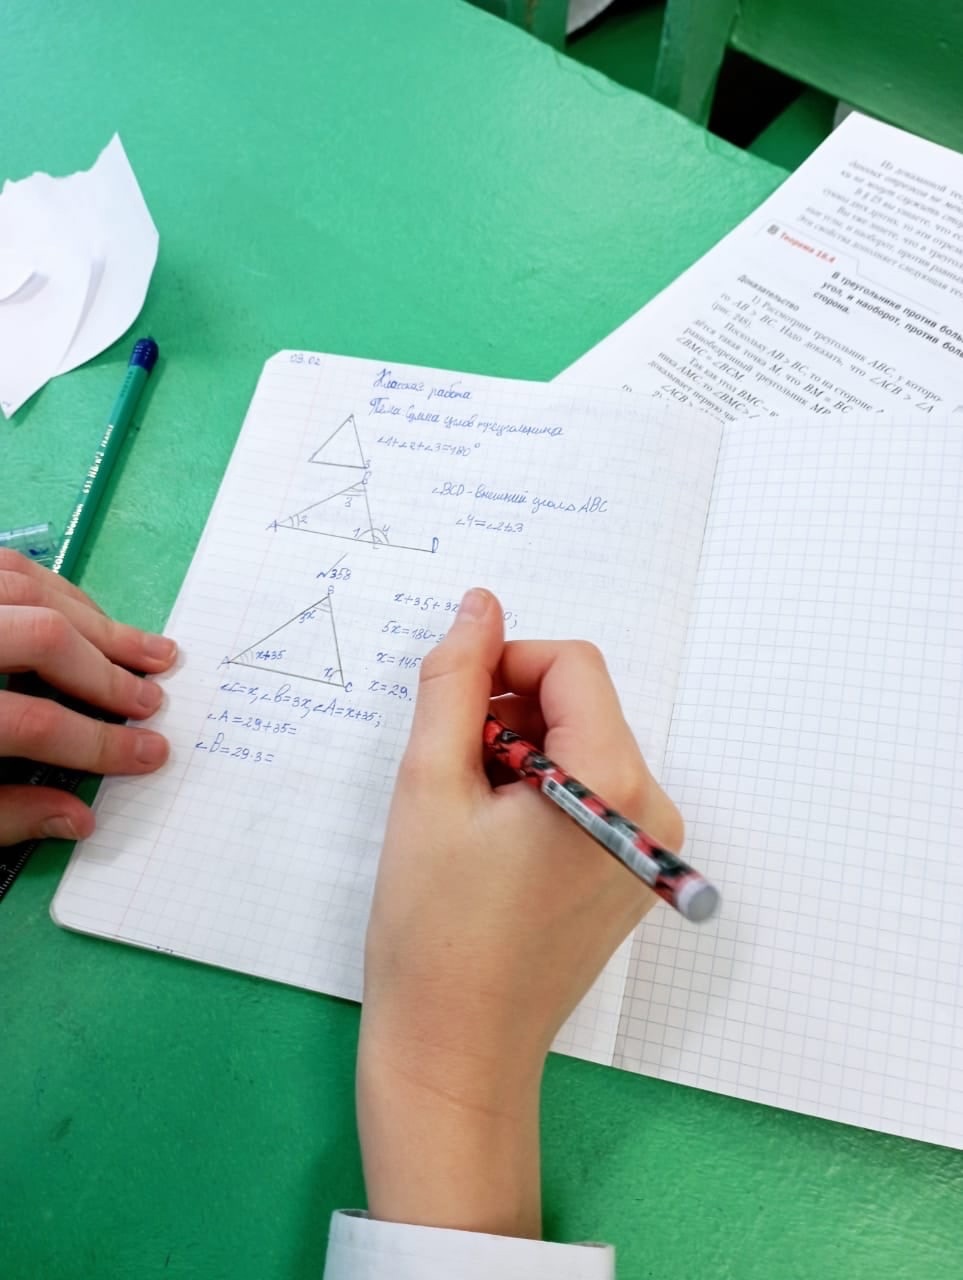 03.02
Классная работа
Тема Сумма углов треугольника
∠1+∠2+∠3=180°
B
3
A
2
1
4
C
D
∠BCD - внешний угол △ABC
∠4=∠2+∠3
№358
B
3x
A
x+35
x
C
x+35+3x
5x=180-3
x=145
x=29.
∠C=x, ∠B=3x, ∠A=x+35;
∠A=29+35=
∠B=29·3=
Из доказанной тео
данных отрезков не мож
ки не могут служить стор
В § 23 вы узнаете, что ес
суммы двух других, то эти отрез
Вы уже знаете, что в треугол
ные углы, и наоборот, против равных
Эти свойства дополняет следующая тео
Теорема 16.4
В треугольнике против боль
угол, и наоборот, против боль
сторона.
Доказательство
1) Рассмотрим треугольник ABC, у которо-
го AB > BC. Надо доказать, что ∠ACB > ∠A
(рис. 248).
Поскольку AB > BC, то на стороне
дётся такая точка M, что BM = BC
равнобедренный треугольник MB
∠BMC = ∠BCM.
Так как угол BMC – в
ника AMC, то ∠BMC > ∠
доказывает первую час
∠ACB >